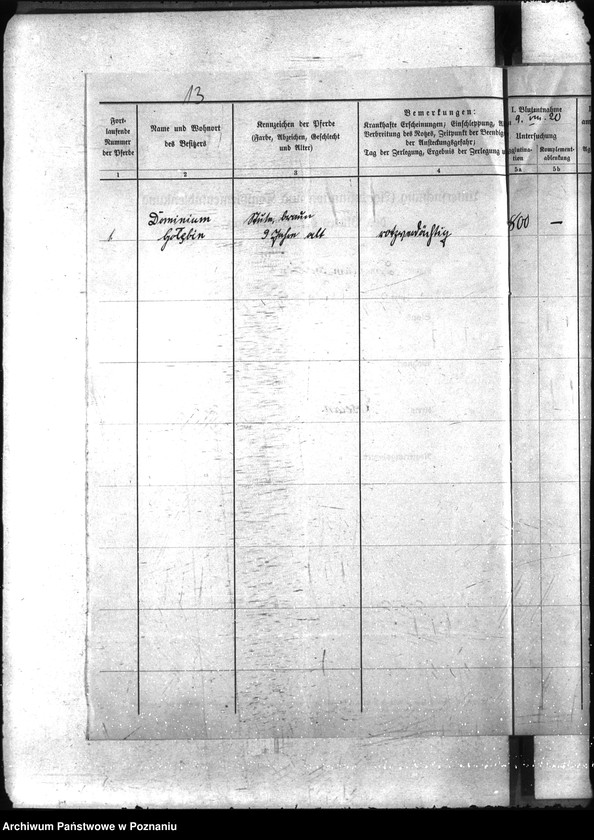 13
Fort-
laufende
Nummer
der Pferde
Name und Wohnort
des Besitzers
Kennzeichen der Pferde
(Farbe, Abzeichen, Geschlecht
und Alter)
Bemerkungen:
Krankhafte Erscheinungen; Einschleppung,
Verbreitung des Rotzes, Zeitpunkt der Beendig
der Ansteckungsgefahr;
Tag der Zerlegung, Ergebnis der Zerlegung
I. Blutentnahme
9. VIII. 20
Untersuchung
Agglutina-
tion
Komplement-
ablenkung
1 2 3 4 5a 5b
Dominium Stute, braun
9 Jahre alt rotzverdächtig 800 —
Archiwum Państwowe w Poznaniu